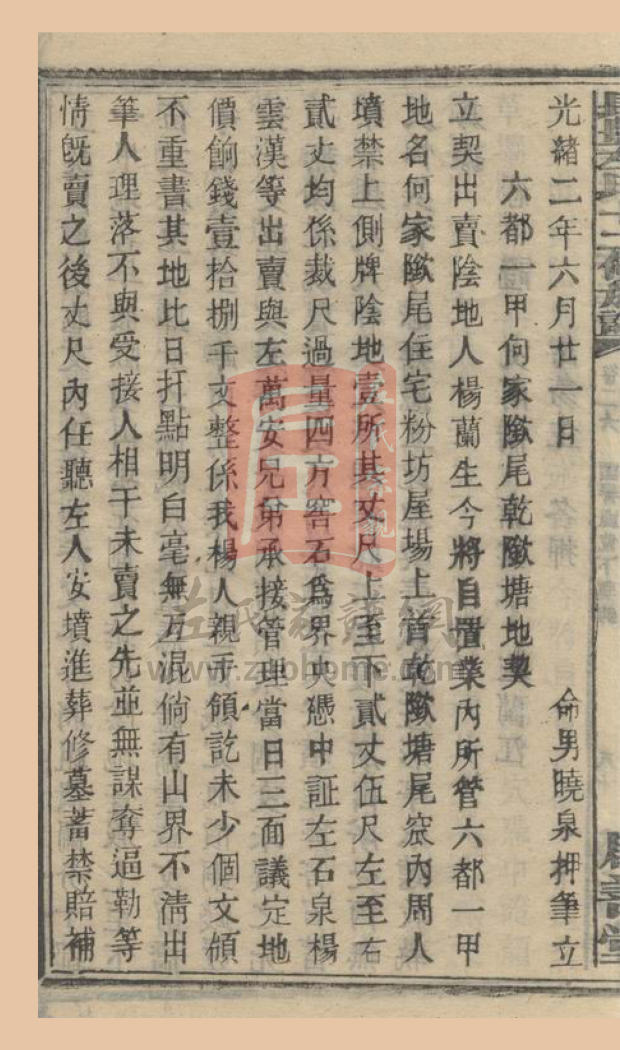 光緒二年六月廿一日　命男曉泉押筆立
六都一甲何家𨻶尾乾𨻶塘地契
立契出賣陰地人楊蘭生今將自置業內所管六都一甲
地名何家𨻶尾住宅粉坊屋場上首乾𨻶塘尾窊內周人
墳禁上側牌陰地壹所其丈尺上至下貳丈伍尺左至右
貳丈均係裁尺過量四方窖石為界央憑中証左石泉楊
雲漢等出賣與左萬安兄弟承接管理當日三面議定地
價餉錢壹拾捌千文整係我楊人親手領訖未少個文領
不重書其地比日扦點明白毫無互混倘有山界不清出
筆人理落不與受接人相干未賣之先並無謀奪逼勒等
情旣賣之後丈尺內任聽左人安墳進葬修墓蓄禁賠補
左氏族譜網
www.zuobhome.com